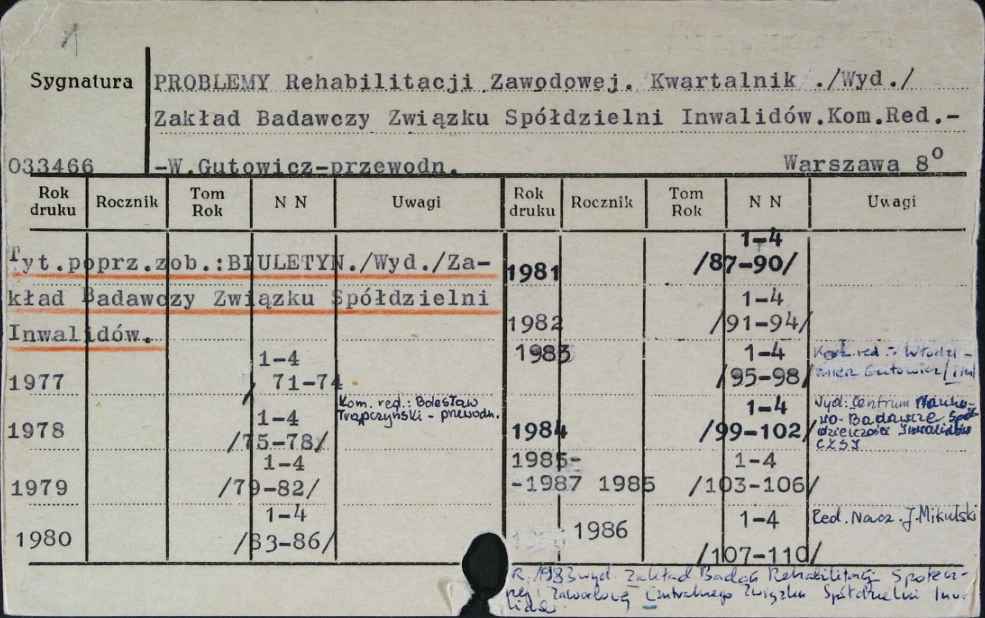 1
Sygnatura
PROBLEMY Rehabilitacji Zawodowej. Kwartalnik ./Wyd./
Zakład Badawczy Związku Spółdzielni Inwalidów.Kom.Red.-
033466
-W.Gutowicz-przewodn. Warszawa 8º
Rok druku Rocznik Tom Rok N N Uwagi Rok druku Rocznik Tom Rok N N Uwagi
Tyt.poprz.zob.:BIULETYN./Wyd./Za-
kład Badawczy Związku Spółdzielni
Inwalidów.
1977 1-4
/ 71-74
1978 1-4
/75-78/ Kom. red.: Bolesław
Trąpczyński - przewodn.
1979 1-4
/79-82/
1980 1-4
/83-86/
1981 1-4
/87-90/
1982 1-4
/91-94/
1983 1-4
/95-98/ Kom. red.: Włodzi-
mierz Gutowicz
1984 1-4
/99-102/ Wyd: Centrum Nauko-
wo-Badawcze Spół-
dzielczości Inwalidów
CZSI
1985-
-1987 1985 1-4
/103-106/
1986 1-4
/107-110/ Red. Nacz. J. Mikulski
R. 1983 wyd. Zakład Badań Rehabilitacji Społecz-
nej i Zawodowej Centralnego Związku Spółdzielni Inwa-
lidów